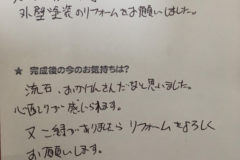 外壁塗装のリフォームをお願いしました。
★ 完成後の今のお気持ちは?
流石、おかけんさんだなと思いました。
心配りが感じられます。
又ご縁がありましたら リフォームをよろしく
お願いします。